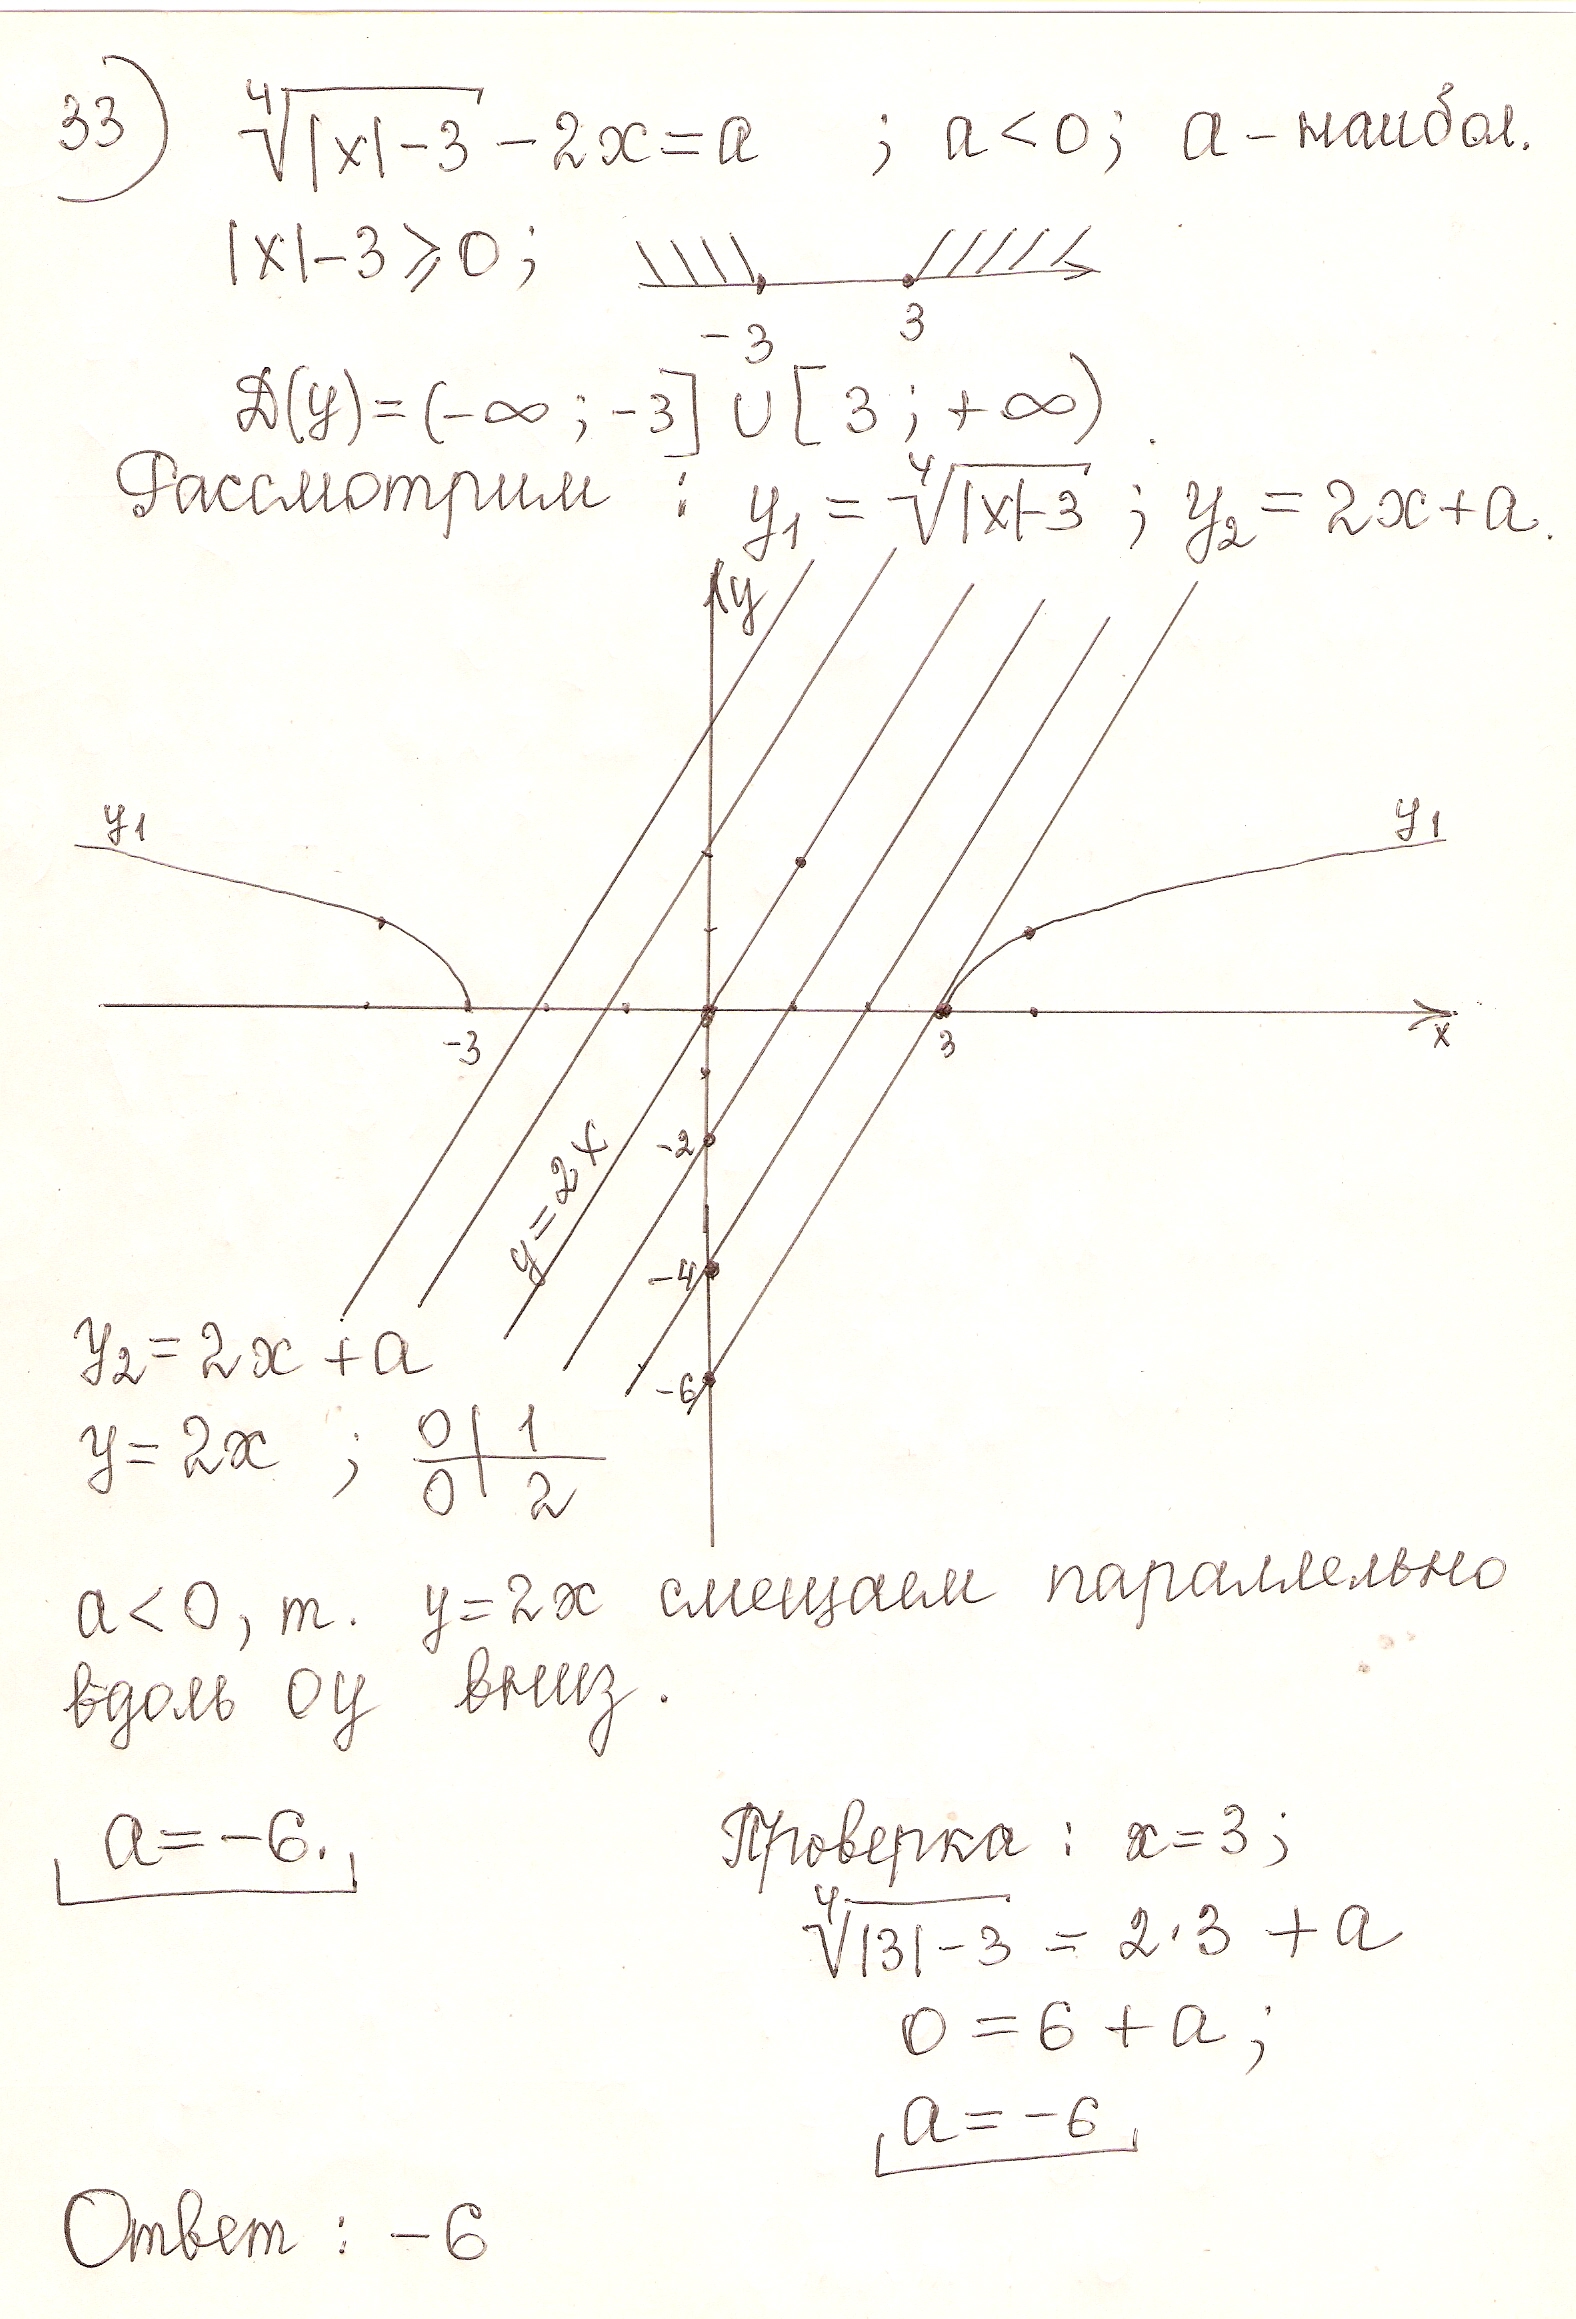 33) ⁴√|x|-3 - 2x = a ; a < 0; a - наибол.
|x|-3 ⩾ 0;
-3 3
D(y) = (-∞ ; -3] ∪ [ 3 ; +∞)
Рассмотрим : y₁ = ⁴√|x|-3 ; y₂ = 2x + a.
y
y₁ y₁
-3 3 x
-2
y = 2x
-4
-6
y₂ = 2x + a
y = 2x ; 0 | 1
0 | 2
a < 0, т. y = 2x смещаем параллельно
вдоль OY вниз.
a = -6.
Проверка : x = 3 ;
⁴√|3|-3 = 2·3 + a
0 = 6 + a ;
a = -6
Ответ : -6